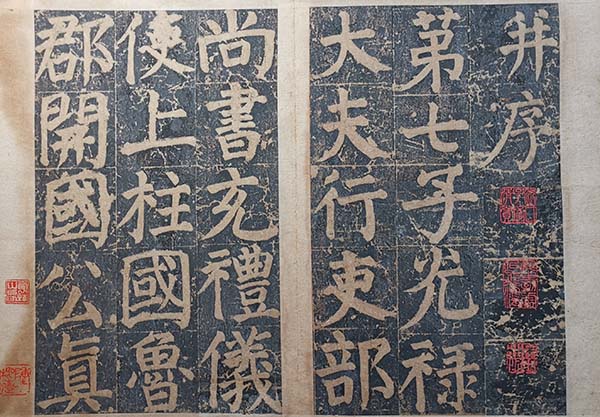 并序
第七子光禄
大夫行吏部
尚書充禮儀
使上柱國魯
郡開國公眞